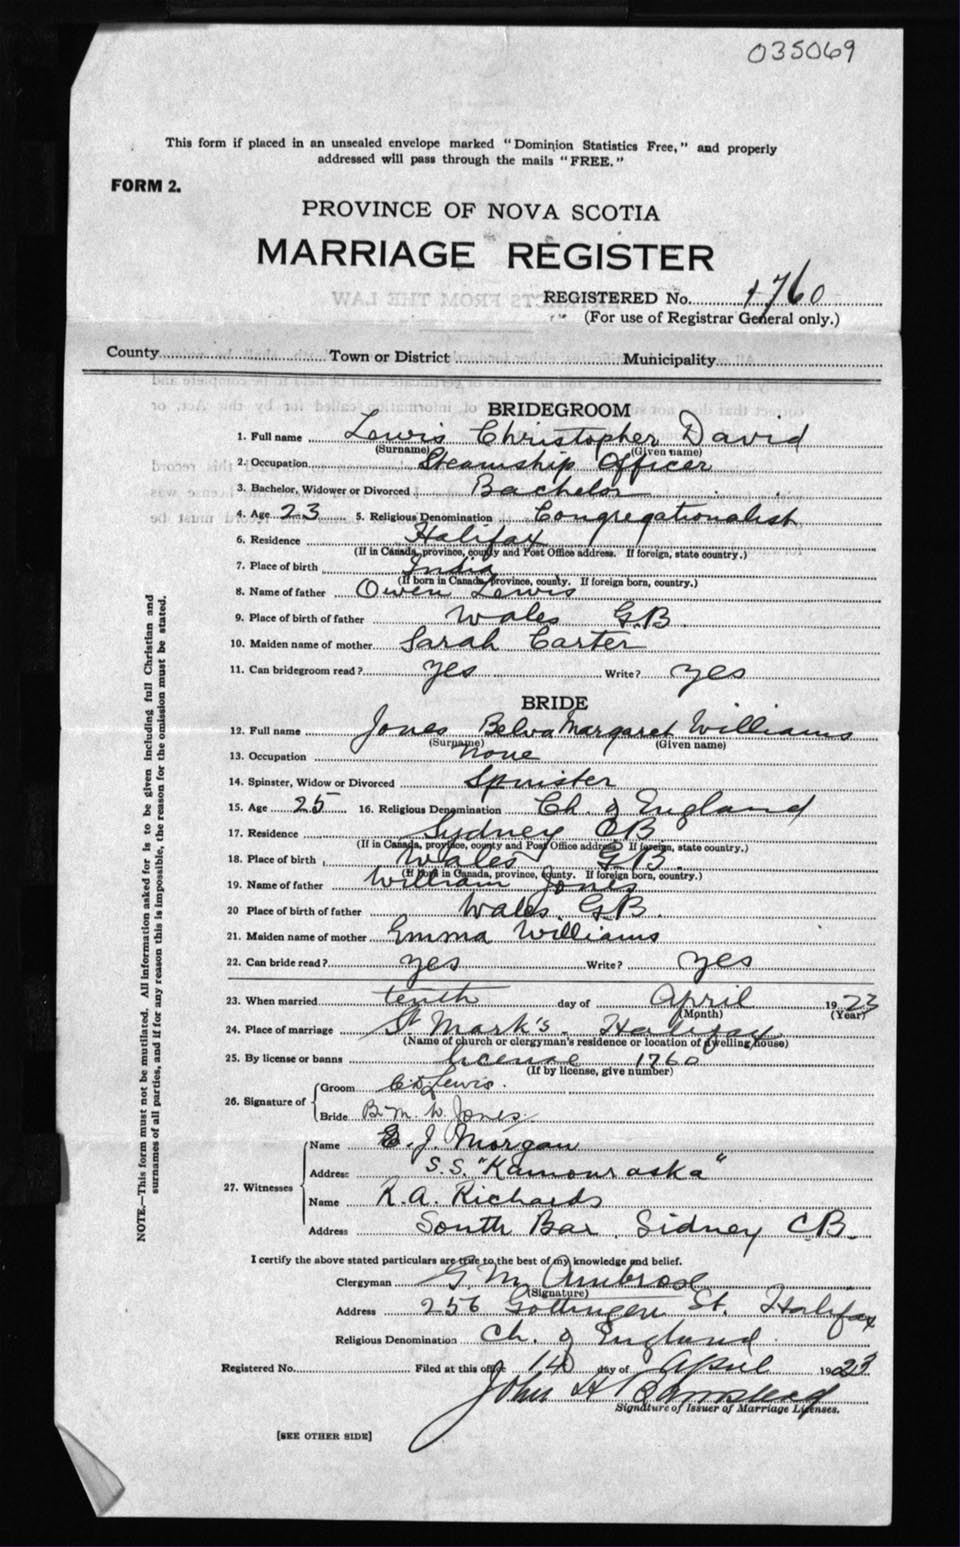 035069
This form if placed in an unsealed envelope marked "Dominion Statistics Free," and properly
addressed will pass through the mails "FREE."
FORM 2.
PROVINCE OF NOVA SCOTIA
MARRIAGE REGISTER
REGISTERED No. 1760
(For use of Registrar General only.)
County Town or District Municipality
BRIDEGROOM
1. Full name Lewis Christopher David
(Surname) (Given name)
2. Occupation Steamship Officer
3. Bachelor, Widower or Divorced Bachelor
4. Age 23 5. Religious Denomination Congregationalist
6. Residence Halifax
(If in Canada, province, county and Post Office address. If foreign, state country.)
7. Place of birth India
(If born in Canada, province, county. If foreign born, country.)
8. Name of father Owen Lewis
9. Place of birth of father Wales G.B.
10. Maiden name of mother Sarah Carter
11. Can bridegroom read? yes Write? yes
BRIDE
12. Full name Jones Belva Margaret Williams
(Surname) (Given name)
13. Occupation none
14. Spinster, Widow or Divorced Spinster
15. Age 25 16. Religious Denomination Ch. of England
17. Residence Sydney CB
(If in Canada, province, county and Post Office address. If foreign, state country.)
18. Place of birth Wales G.B.
(If born in Canada, province, county. If foreign born, country.)
19. Name of father William Jones
20 Place of birth of father Wales, G.B.
21. Maiden name of mother Emma Williams
22. Can bride read? yes Write? yes
23. When married tenth day of April 1923
(Month) (Year)
24. Place of marriage St Mark's. Halifax
(Name of church or clergyman's residence or location of dwelling house)
25. By license or banns license 1760
(If by license, give number)
26. Signature of
Groom C.D. Lewis.
Bride B. M. W. Jones.
27. Witnesses
Name E. J. Morgan
Address S.S. "Kamouraska"
Name R.A. Richards
Address South Bar, Sidney C.B.
I certify the above stated particulars are true to the best of my knowledge and belief.
Clergyman G. M. Ambrose
(Signature)
Address 256 Gottingen St. Halifax
Religious Denomination Ch. of England
Registered No. Filed at this office 14 day of April 1923
John H
Signature of Issuer of Marriage Licenses.
[SEE OTHER SIDE]
NOTE.—This form must not be mutilated. All information asked for is to be given including full Christian and
surnames of all parties, and if for any reason this is impossible, the reason for the omission must be stated.